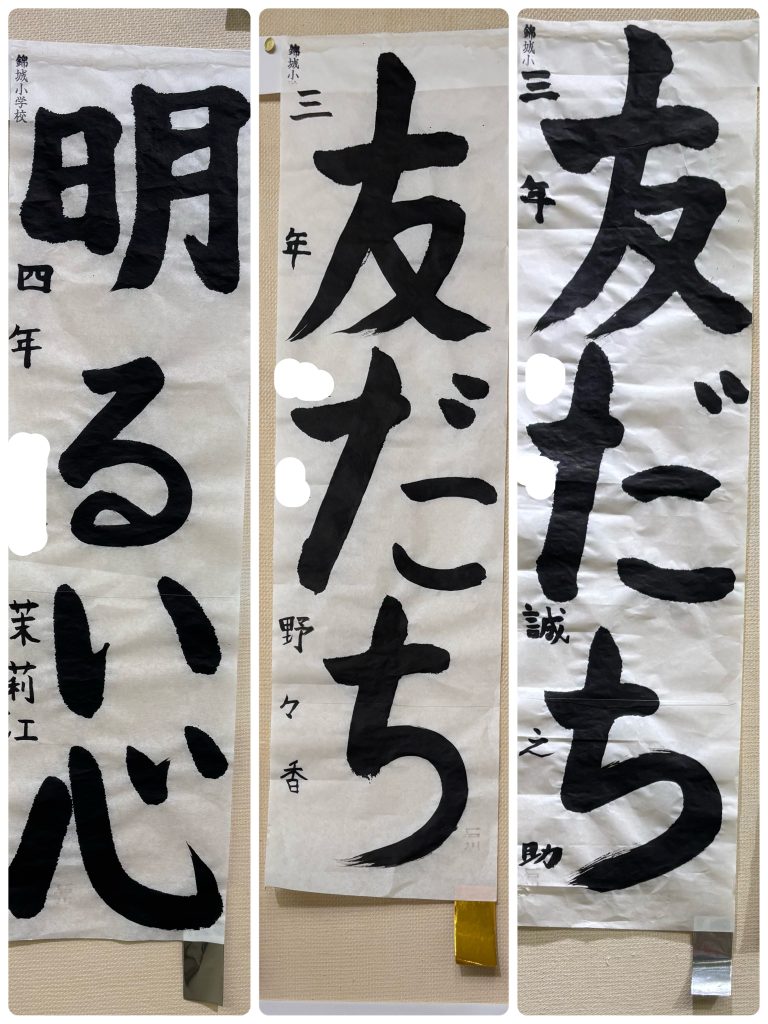 錦城小学校
明るい心
四年
茉莉江
錦城小
友だち
三年
野々香
錦城小
友だち
三年
誠之助